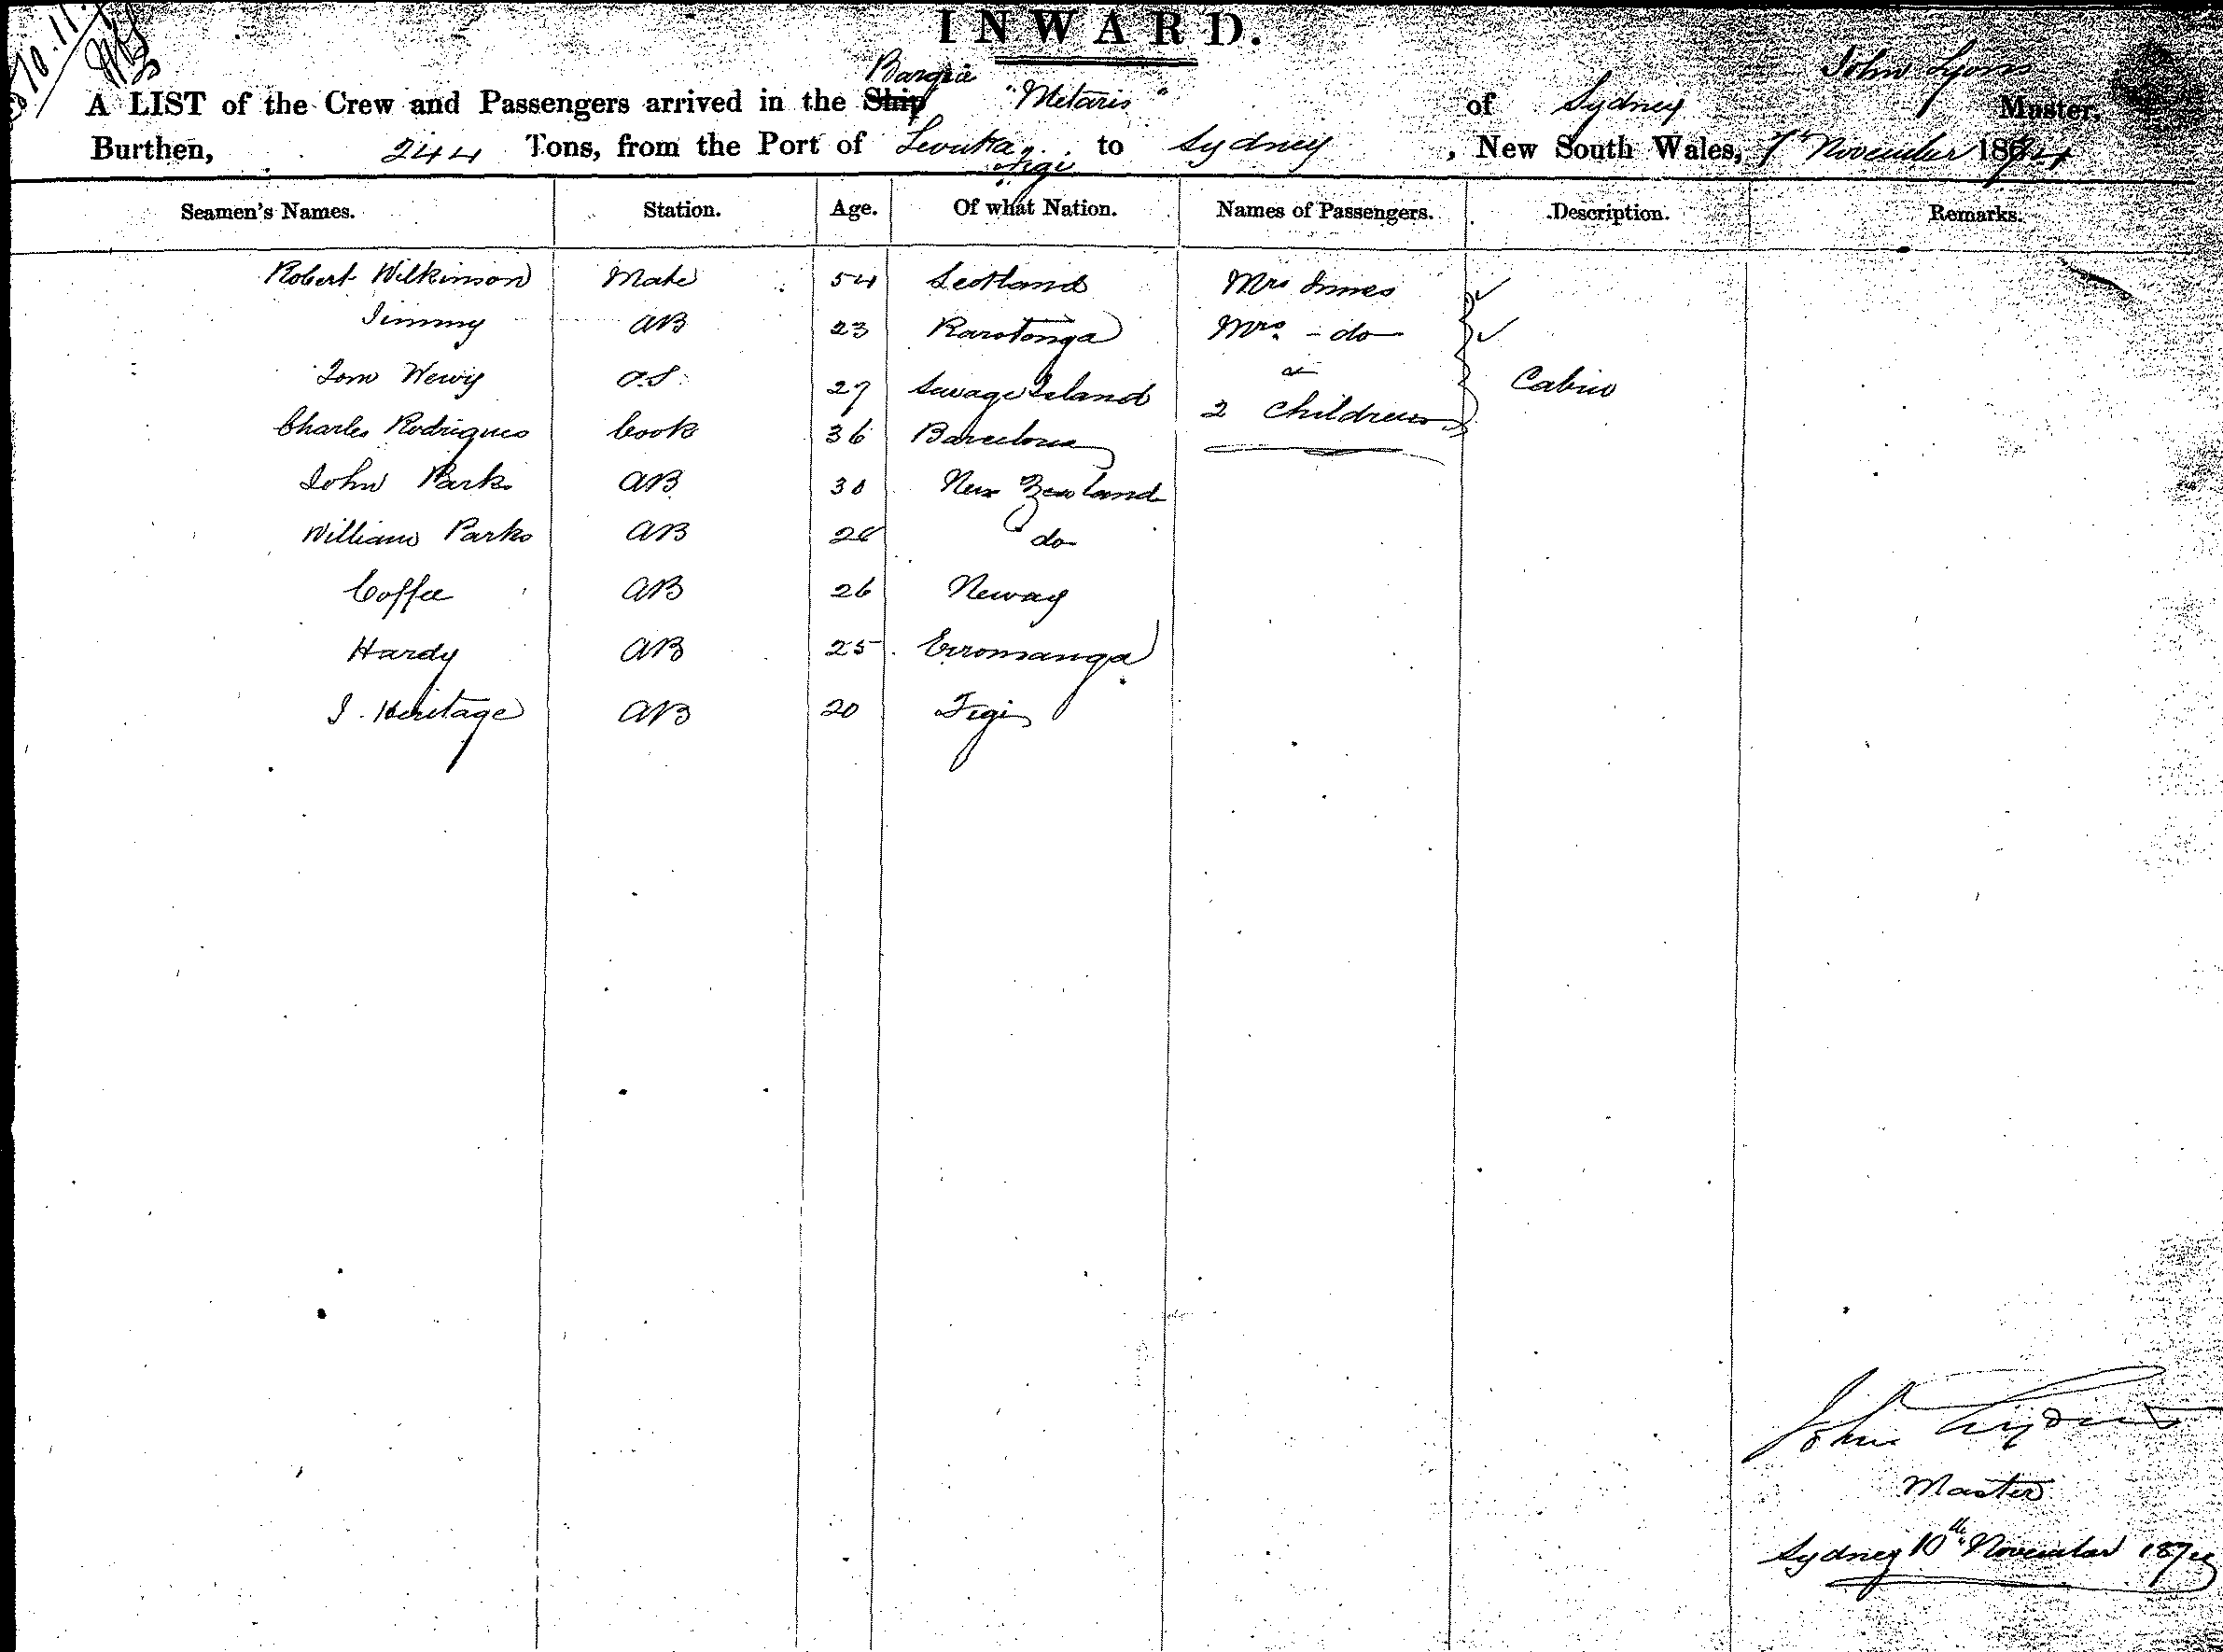 10.11.
INWARD.
Barque John Lyons
A LIST of the Crew and Passengers arrived in the Ship "Metaris" of Sydney Master,
Burthen, 244 Tons, from the Port of Levuka, to Sydney, New South Wales, 7th November 1874
Figi
Seamen's Names. Station. Age. Of what Nation. Names of Passengers. Description. Remarks.
Robert Wilkinson Mate 54 Scotland Mrs Innes
Jimmy AB 23 Rarotonga Mrs. - do
Tom Wewy O.S. 27 Savage Island & Cabin
Charles Rodrigues Cook 36 Barcelona 2 Children
John Parks AB 30 New Zealand
William Parks AB 28 do
Coffee AB 26 Neway
Hardy AB 25 Erromanga
J. Heritage AB 20 Figi
John Lyons
Master
Sydney 10th November 1874